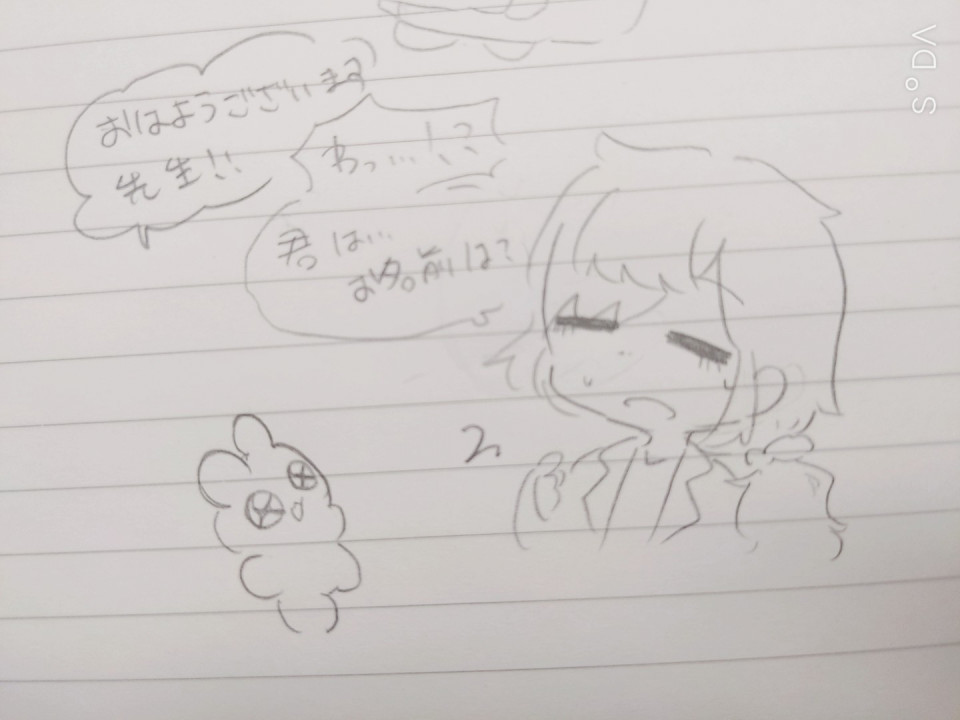 おはようございます
先生!!
わっ…!?
君は…
お名前は?
SODA